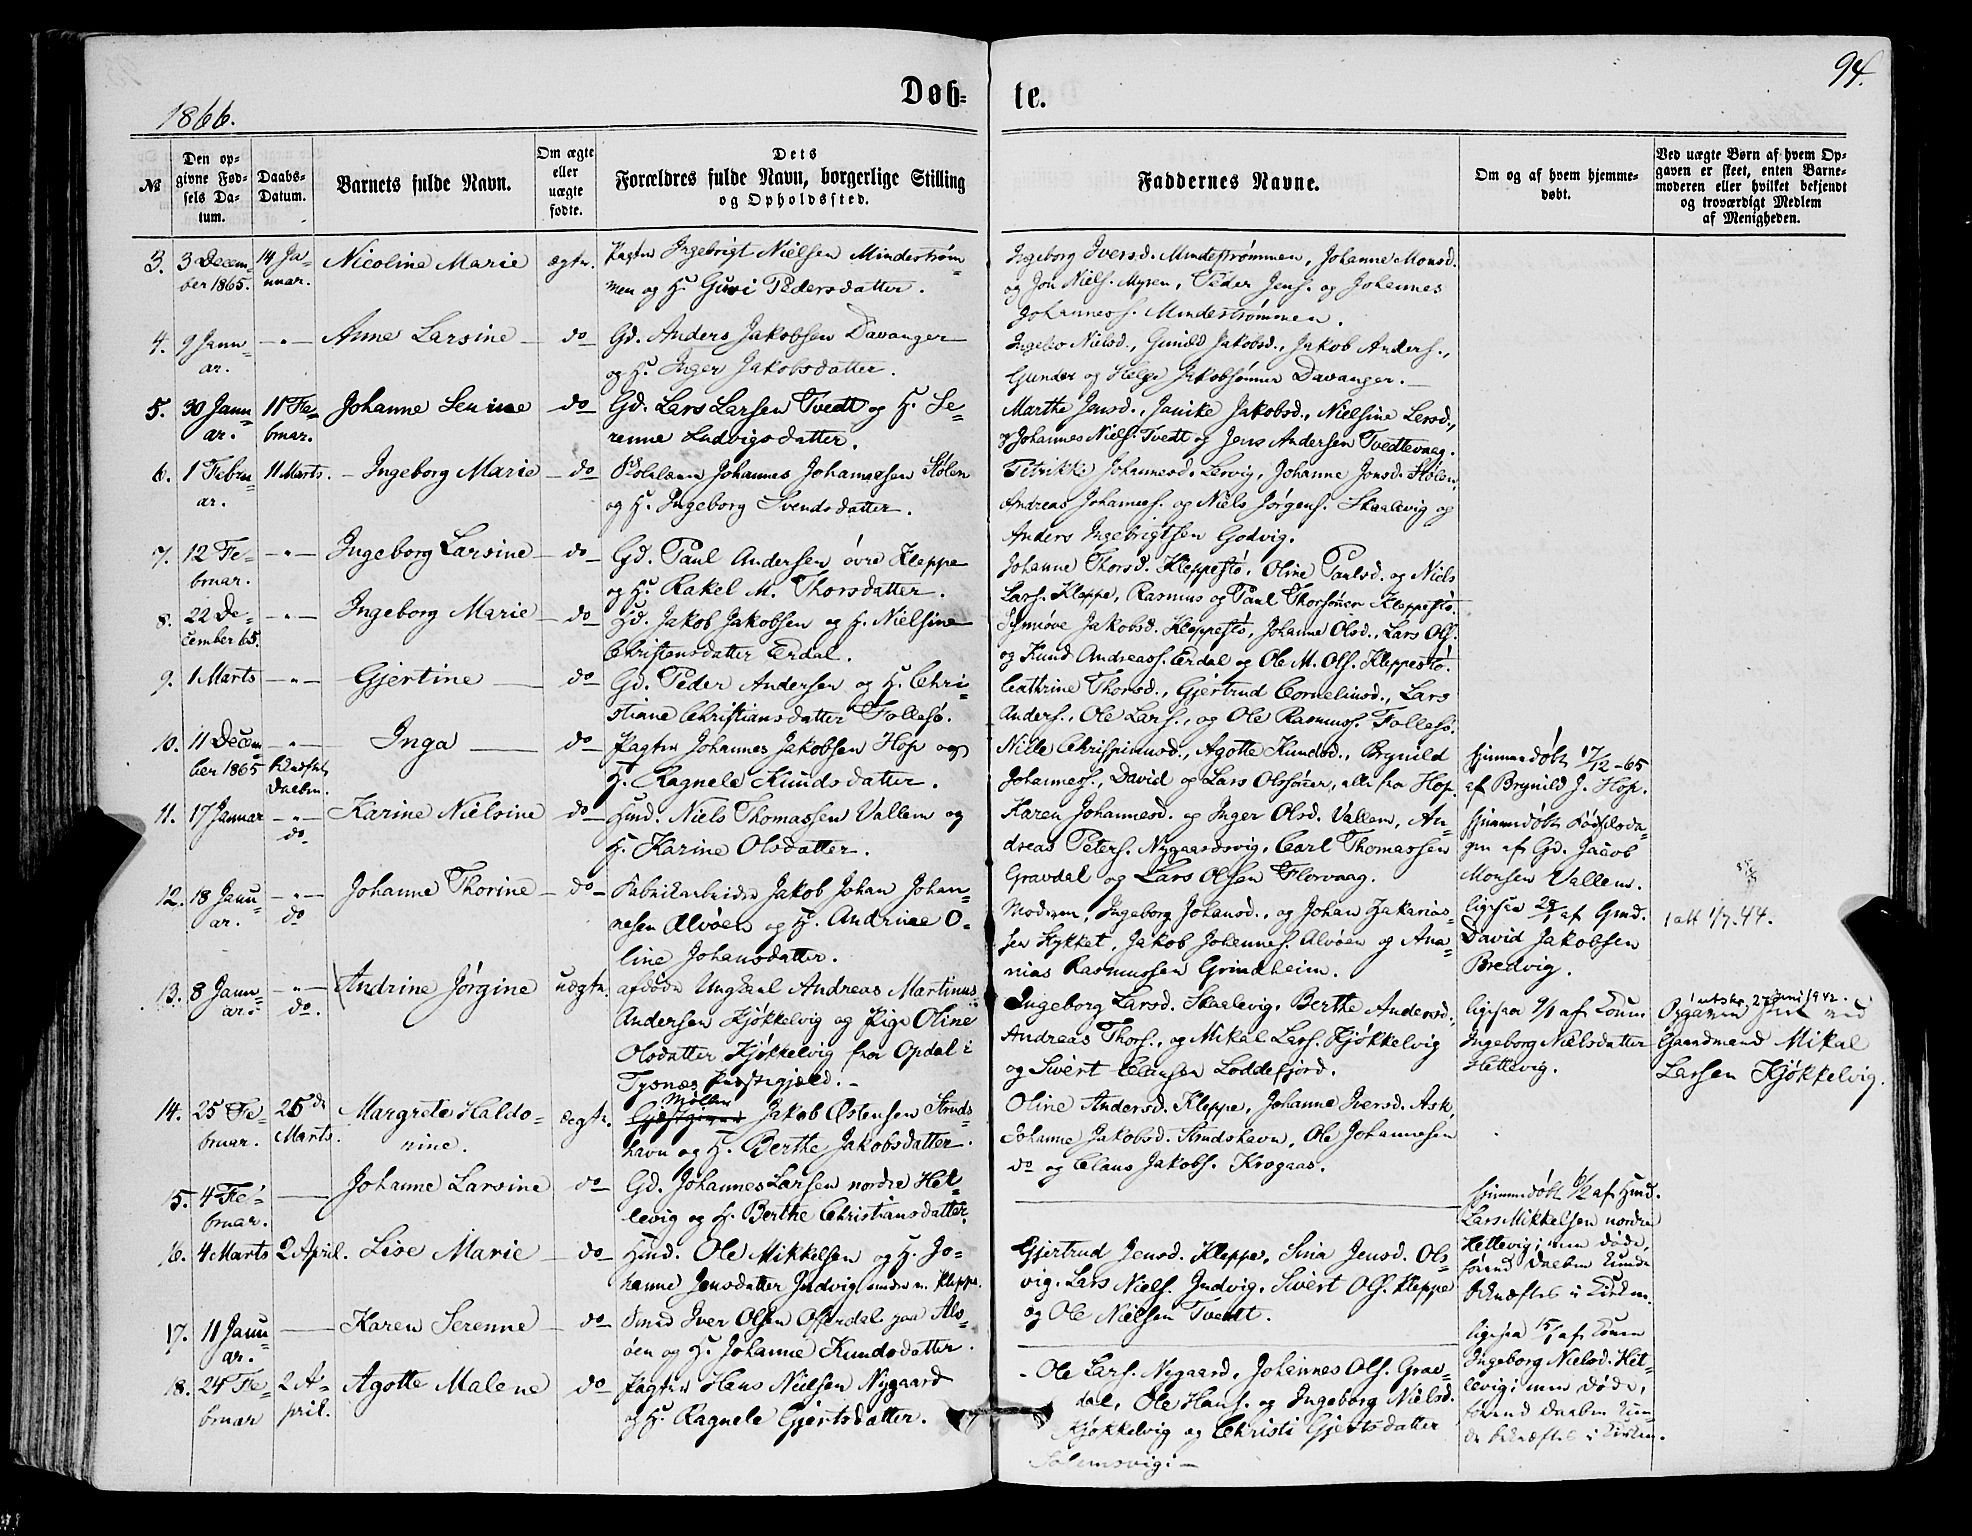 94.
Døb-
te.
1866.
№
Den op-
givne Fød-
sels Da-
tum.
Daabs-
Datum.
Barnets fulde Navn.
Om ægte
eller
uægte
fødte.
Dets
Forældres fulde Navn, borgerlige Stilling
og Opholdssted.
Faddernes Navne.
Om og af hvem hjemme-
døbt.
Ved uægte Børn af hvem Op-
gaven er skeet, enten Barne-
moderen eller hvilket bekjendt
og troværdigt Medlem
af Menigheden.
3. 3 Decem- 14 Ja- Nicoline Marie ægte. Pagter Ingebrigt Nielsen Mindestrøm-
ber 1865. nuar. men og H. Guri Pedersdatter.
Ingeborg Iversd. Mindestrømmen, Johanne Monsd.
og Jon Niels. Myren, Peder Jens. og Johannes
Johanness. Mindestrømmen.
4. 9 Janu- -"- Anne Larsine do Gd. Anders Jakobsen Davanger
ar. og H. Inger Jakobsdatter.
Nielsd., Jakobsd., Jakob Anders.,
Gunder og Helge Jakobsønner Davanger.
5. 30 Janu- 11 Fe- Johanne Senine do Gd. Lars Larsen Tvedt og H. Se-
ar. bruar. renne Ludvigsdatter.
Marthe Jensd., Janike Jakobsd., Nielsine Larsd.,
og Johannes Niels. Tvedt og Jens Andersen Tvedtevaag.
6. 1 Febru- 11 Marts. Ingeborg Marie do Johannes Johannesen Stølen
ar. og H. Ingeborg Svendsdatter.
Johannesd. Lervig, Johanne Jonsd. Stølen,
Andreas Johanness. og Niels Jørgens. Skaalevig og
Anders Ingebrigtsen Godvig.
7. 12 Fe- -"- Ingeborg Larsine do Gd. Paul Andersen øvre Kleppe
bruar. og H. Rakel M. Thorsdatter.
Johanne Thorsd. Kleppestø, Oline Paulsd. og Niels
Lars. Kleppe, Rasmus og Paul Thorsønner Kleppestø.
8. 22 De- -"- Ingeborg Marie do Gd. Jakob Jakobsen og H. Nielsine
cember 65. Christensdatter Erdal.
Synnøve Jakobsd. Kleppestø, Johanne Olsd., Lars Ols.
og Knud Andreass. Erdal og Ole M. Ols. Kleppestø.
9. 1 Marts -"- Gjertine do Gd. Peder Andersen og H. Chri-
stiane Christiansdatter Follesø.
Cathrine Thorsd., Gjertrud Corneliusd., Lars
Anders., Ole Lars., og Ole Rasmuss. Follesø.
10. 11 Decem- -"- Inga do Pagter Johannes Jakobsen Hop og
ber 1865 Daaben. H. Ragnele Knudsdatter.
Nille Chrispinusd., Agotte Knudsd., Brynild
Johanness., David og Lars Olssøner, alle fra Hop.
hjemmedøbt 17/12-65
af Brynild J. Hop.
11. 17 Januar -"- Karine Nielsine do Hmd. Niels Thomassen Vallem og
do. H. Karine Olsdatter.
Karen Johannesd. og Inger Olsd. Vallem, An-
dreas Peters. Nygaardsvig, Carl Thomassen
Gravdal og Lars Olsen Florvaag.
hjemmedøbt Fødselsda-
gen af Gd. Jacob
Monsen Vallem.
12. 18 Janu- -"- Johanne Thorine do Fabrikarbeider Jakob Johan Johan-
ar. do nesen Alvøen og H. Andrine O-
line Johansdatter.
Moderen, Ingeborg Johansd., og Johan Zakarias-
sen Stykket, Jakob Johannes. Alvøen og Ana-
nias Rasmussen Grindheim.
ligesaa 28/1 af Gmd.
David Jakobsen
Bredvig.
1 att 1/7.44.
13. 8 Janu- -"- Andrine Jørgine uægte. afdøde Ungkarl Andreas Martinus
ar. do. Andersen Kjøkkelvig og Pige Oline
Olsdatter Kjøkkelvig fra Opdal i
Tysnæs Præstegjæld.
Ingeborg Larsd. Skaalevig, Berthe Andersd.,
Andreas Thors., og Mikal Lars. Kjøkkelvig
og Sivert Clausen Loddefjord.
ligesaa 9/1 af Konen
Ingeborg Nielsdatter
Hettevig.
utskr. 27 juni 1942.
Opgaven skeet ved
Gaardmand Mikal
Larsen Kjøkkelvig.
14. 25 Fe- 25de Margrete Haldo- ægte. Gjæstgiver Jakob Østensen Struds-
bruar. Marts. nine. havn og H. Berthe Jakobsdatter.
Oline Andersd. Kleppe, Johanne Iversd. Ask,
Johanne Jakobsd. Strudshavn, Ole Johannesen
do og Claus Jakobs. Krogaas.
15. 4 Fe- Johanne Larsine do Gd. Johannes Larsen nordre Het-
bruar. levig og H. Berthe Christiansdatter.
hjemmedøbt 6/2 af Hmd.
Lars Mikkelsen nordre
Hettevig; men døde,
førend Daaben kunde
bekræftes i Kirken.
16. 4 Marts 2 April. Lise Marie do Hmd. Ole Mikkelsen og H. Jo-
hanne Jensdatter Indvig under n. Kleppe.
Gjertrud Jensd. Kleppe, Sina Jensd. Ols-
vig, Lars Niels. Indvig, Sivert Ols. Kleppe
og Ole Nielsen Tvedt.
17. 11 Janu- Karen Serenne do Smed Iver Olsen Osterdal paa Alv-
ar. øen og H. Johanne Knudsdatter.
ligesaa 15/1 af Konen
Ingeborg Nielsd. Het-
levig; men døde,
førend Daaben kun-
de bekræftes i Kirken.
18. 24 Fe- 2 A- Agotte Malene do Pagter Hans Nielsen Nygaard
bruar pril. og H. Ragnele Gjertsdatter.
Ole Lars. Nygaard, Johannes Ols. Grav-
dal, Ole Hans. og Ingeborg Nielsd.
Kjøkkelvig og Christi Gjertsdatter